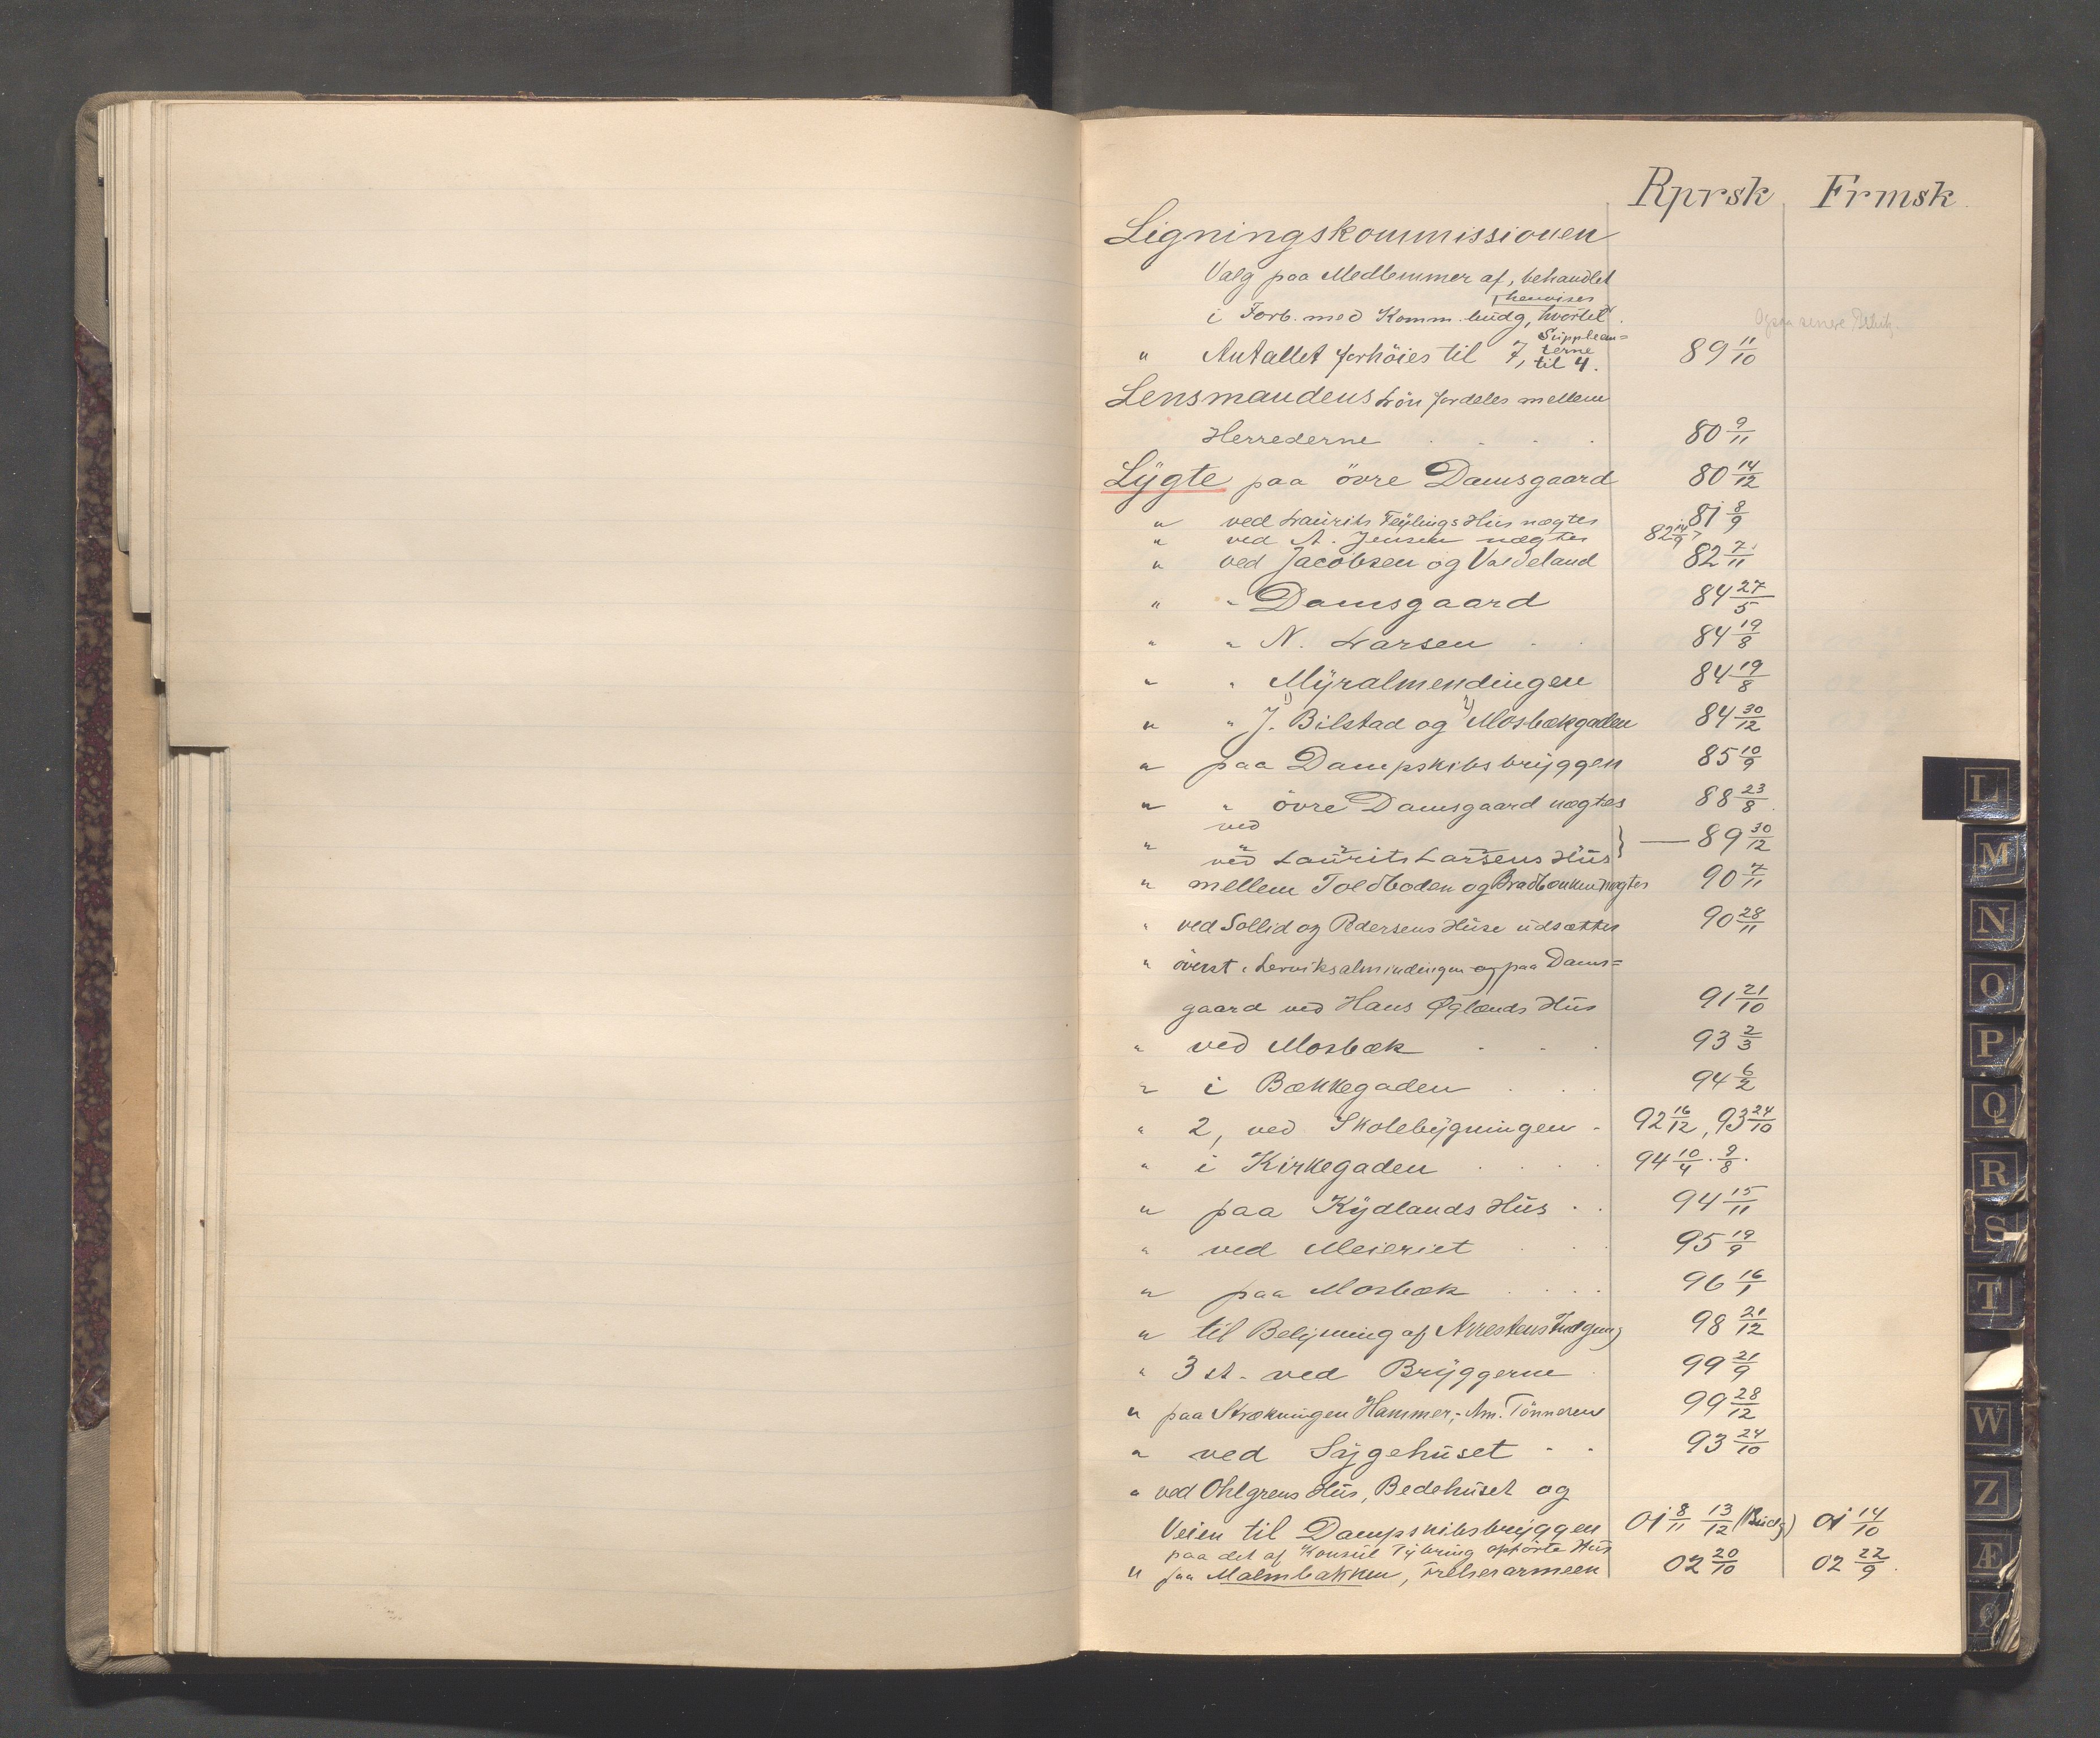 Rprsk Frmsk
Ligningskommissionen
Valg paa Medlemmer af, behandlet
i Forb. med Komm. budg, hvortil henvises
Ogsaa senere
" Antallet forhöies til 7, Supplean=terne til 4. 89 11/10
Lensmandens Lön fordeles mellem
Herrederne . . . . 80 9/11
Lÿgte paa övre Damsgaard 80 14/12
" ved Laurits Teÿlings Hus nægtes 81 8/9
" ved A. Jensen nægtes 82 14/9
" ved Jacobsen og Valdeland 82 7/11
" " Damsgaard 84 27/5
" " N. Larsen . . 84 19/8
" " Mÿralmendingen 84 19/8
" " 1) J. Bilstad og 2) Mosbækgaden 84 30/12
" paa Dampskibsbrÿggen 85 10/9
" " övre Damsgaard nægtes 88 23/8
" ved " " "
ved Laurits Larsens Hüs } — 89 30/12
" mellem Toldboden og Bradbænken nægtes 90 7/11
" ved Sollid og Pedersens Hüse udsættes 90 28/11
" överst i Lerviksalmindingen og paa Dams=
gaard ved Hans Øglænds Hüs 91 21/10
" ved Mosbæk . . . 93 2/3
" i Bækkegaden . . 94 6/2
" 2, ved Skolebÿgningen . 92 16/12, 93 24/10
" i Kirkegaden . . . . 94 10/4 . 9/8 .
" paa Kÿdlands Hüs . . 94 15/11
" ved Meieriet . . 95 19/9
" paa Mosbæk . . . . 96 16/1
" til Belÿsning af Arrestens Indgang 98 21/12
" 3 st. ved Brÿggerne . 99 21/9
" paa Strækningen Hammer,- Am. Tönnesens 99 28/12
" ved Sÿgehüset - - 93 24/10
" ved Ohlgrens Hüs, Bedehüset og
Veien til Dampskibsbrÿggen 01 8/11 13/12 (Büdg) 01 14/10
paa det af Konsül Tÿbring opförte Hüs
" paa Malmbakken, Frelserarmeen 02 20/10 02 22/9.
L
M
N
O
P
Q
R
S
T
W
Z
Æ
Ø